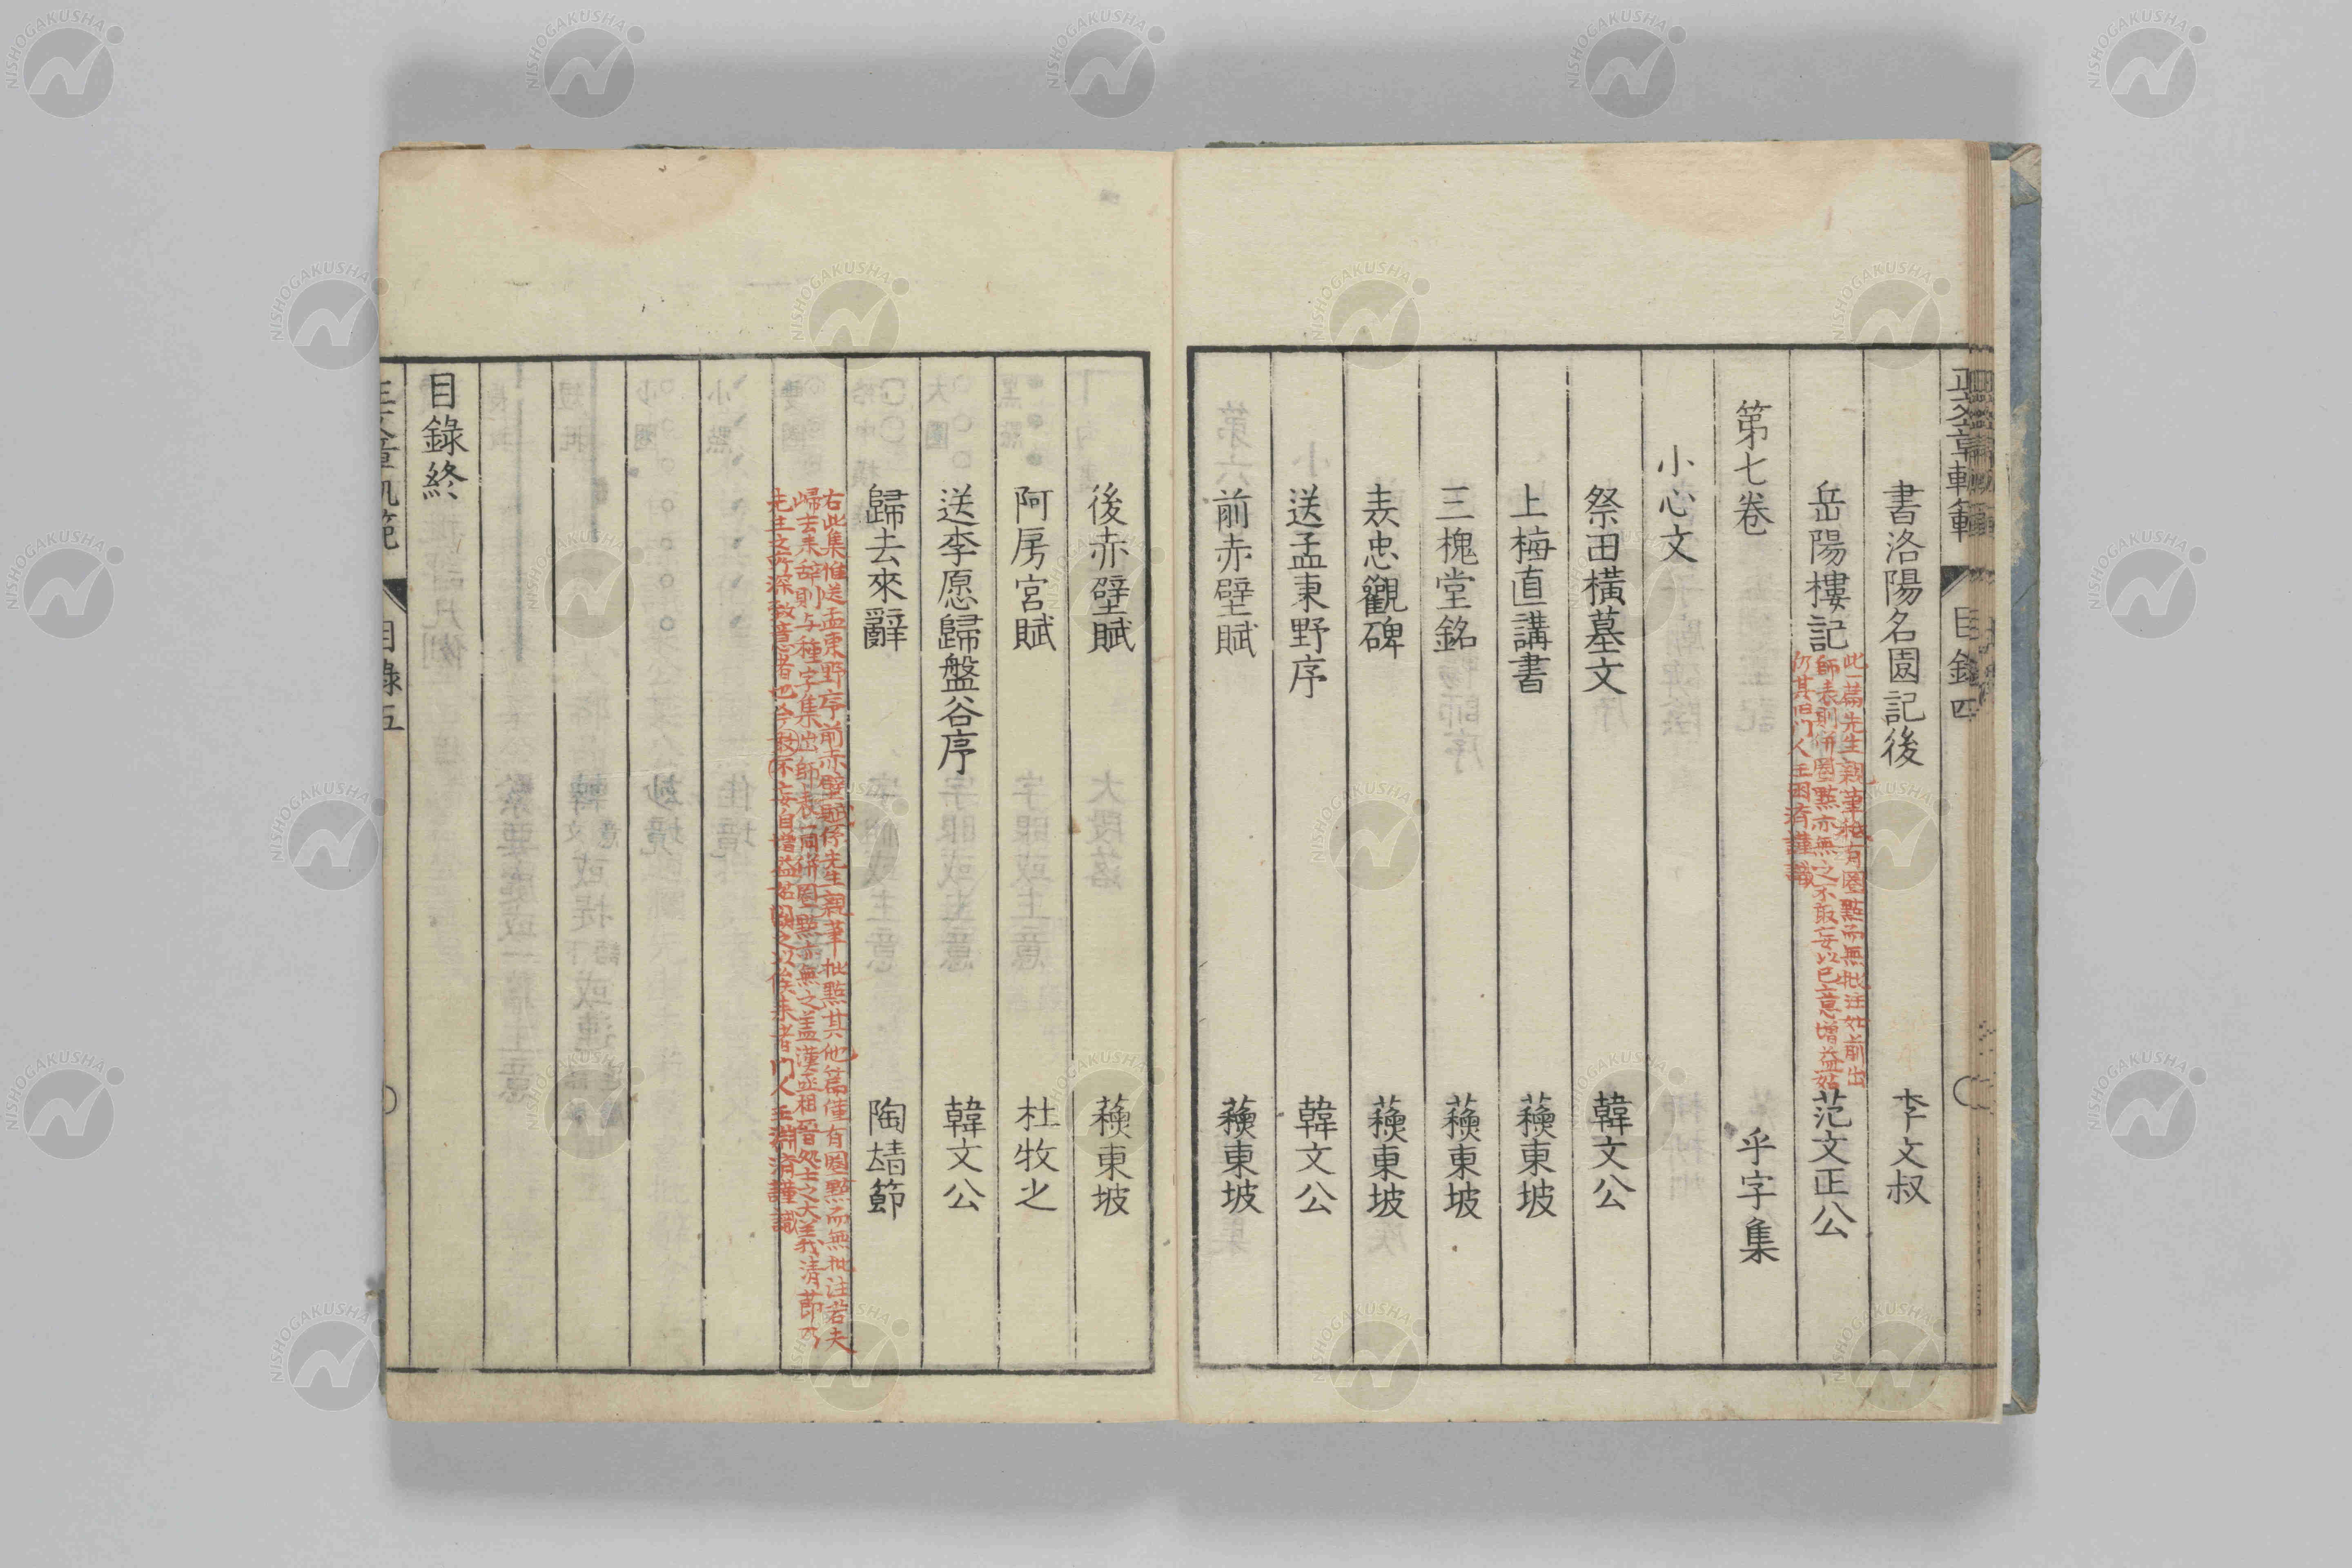 書洛陽名園記後 李文叔
岳陽樓記 范文正公
此一篇先生親筆秪有圏點而無批注如前出
師表則併圏點亦無之不敢妄以己意增益姑
仍其旧門人王困済謹識
第七卷 乎字集
小心文
祭田橫墓文 韓文公
上梅直講書 蘓東坡
三槐堂銘 蘓東坡
表忠觀碑 蘓東坡
送孟東野序 韓文公
前赤壁賦 蘓東坡
目錄 四
後赤壁賦 蘓東坡
阿房宮賦 杜牧之
送李愿歸盤谷序 韓文公
歸去來辭 陶靖節
右此集惟送孟東野序前赤壁賦係先生親筆批點其他篇僅有圏點而無批注若夫
帰去来辞則与種字集出師表一同併圏點亦無之盖漢丞相晋処士之大義清節乃
先生之所深致意者也今不敢妄自增益姑闕之以俟来者門人王淵済謹識
目錄終
文章軌範 目錄 五
NISHOGAKUSHA